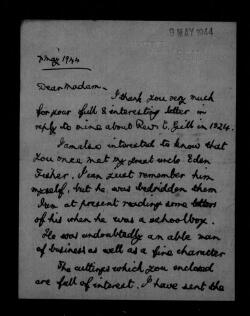 9 MAY 1944
7 May 1944
Dear Madam.
I thank you very much
for your full & interesting letter in
reply to mine about Rev. C. Gill in 1824.
I am also interested to know that
you once met my great uncle Eden
Fisher. I can just remember him
myself, but he was bedridden then
I am at present reading some letters
of his when he was a schoolboy.
He was undoubtedly an able man
of business as well as a fine character
The cuttings which you enclosed
are full of interest. I have sent the